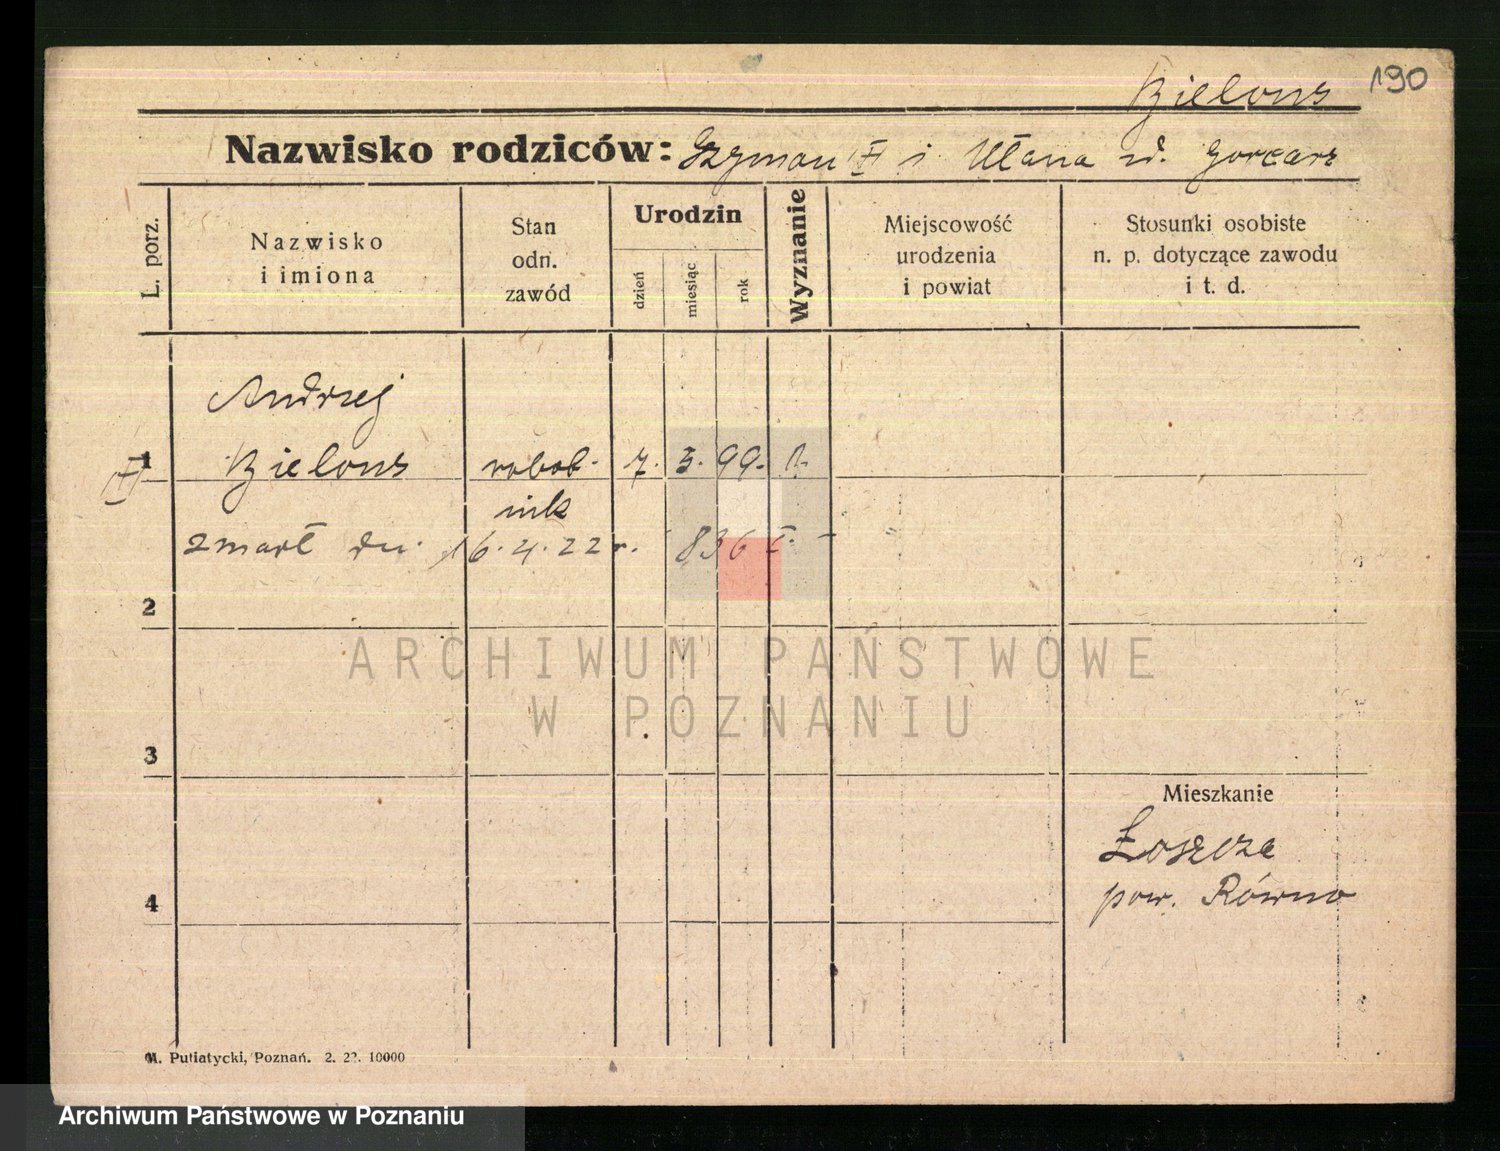 Bielous 190
Nazwisko rodziców: Szymon i Ulana
L. porz.
Nazwisko
i imiona
Stan
odn.
zawód
Urodzin
dzień
miesiąc
rok
Wyznanie
Miejscowość
urodzenia
i powiat
Stosunki osobiste
n. p. dotyczące zawodu
i t. d.
Andrzej
1 Bielous robot- 7. 3. 99.
nik
zmarł dn. 16.4.22 r. 836
2
ARCHIWUM PAŃSTWOWE
W POZNANIU
3
Mieszkanie
Łoszcze
pow. Równo
4
M. Putiatycki, Poznań. 2. 22. 10000
Archiwum Państwowe w Poznaniu